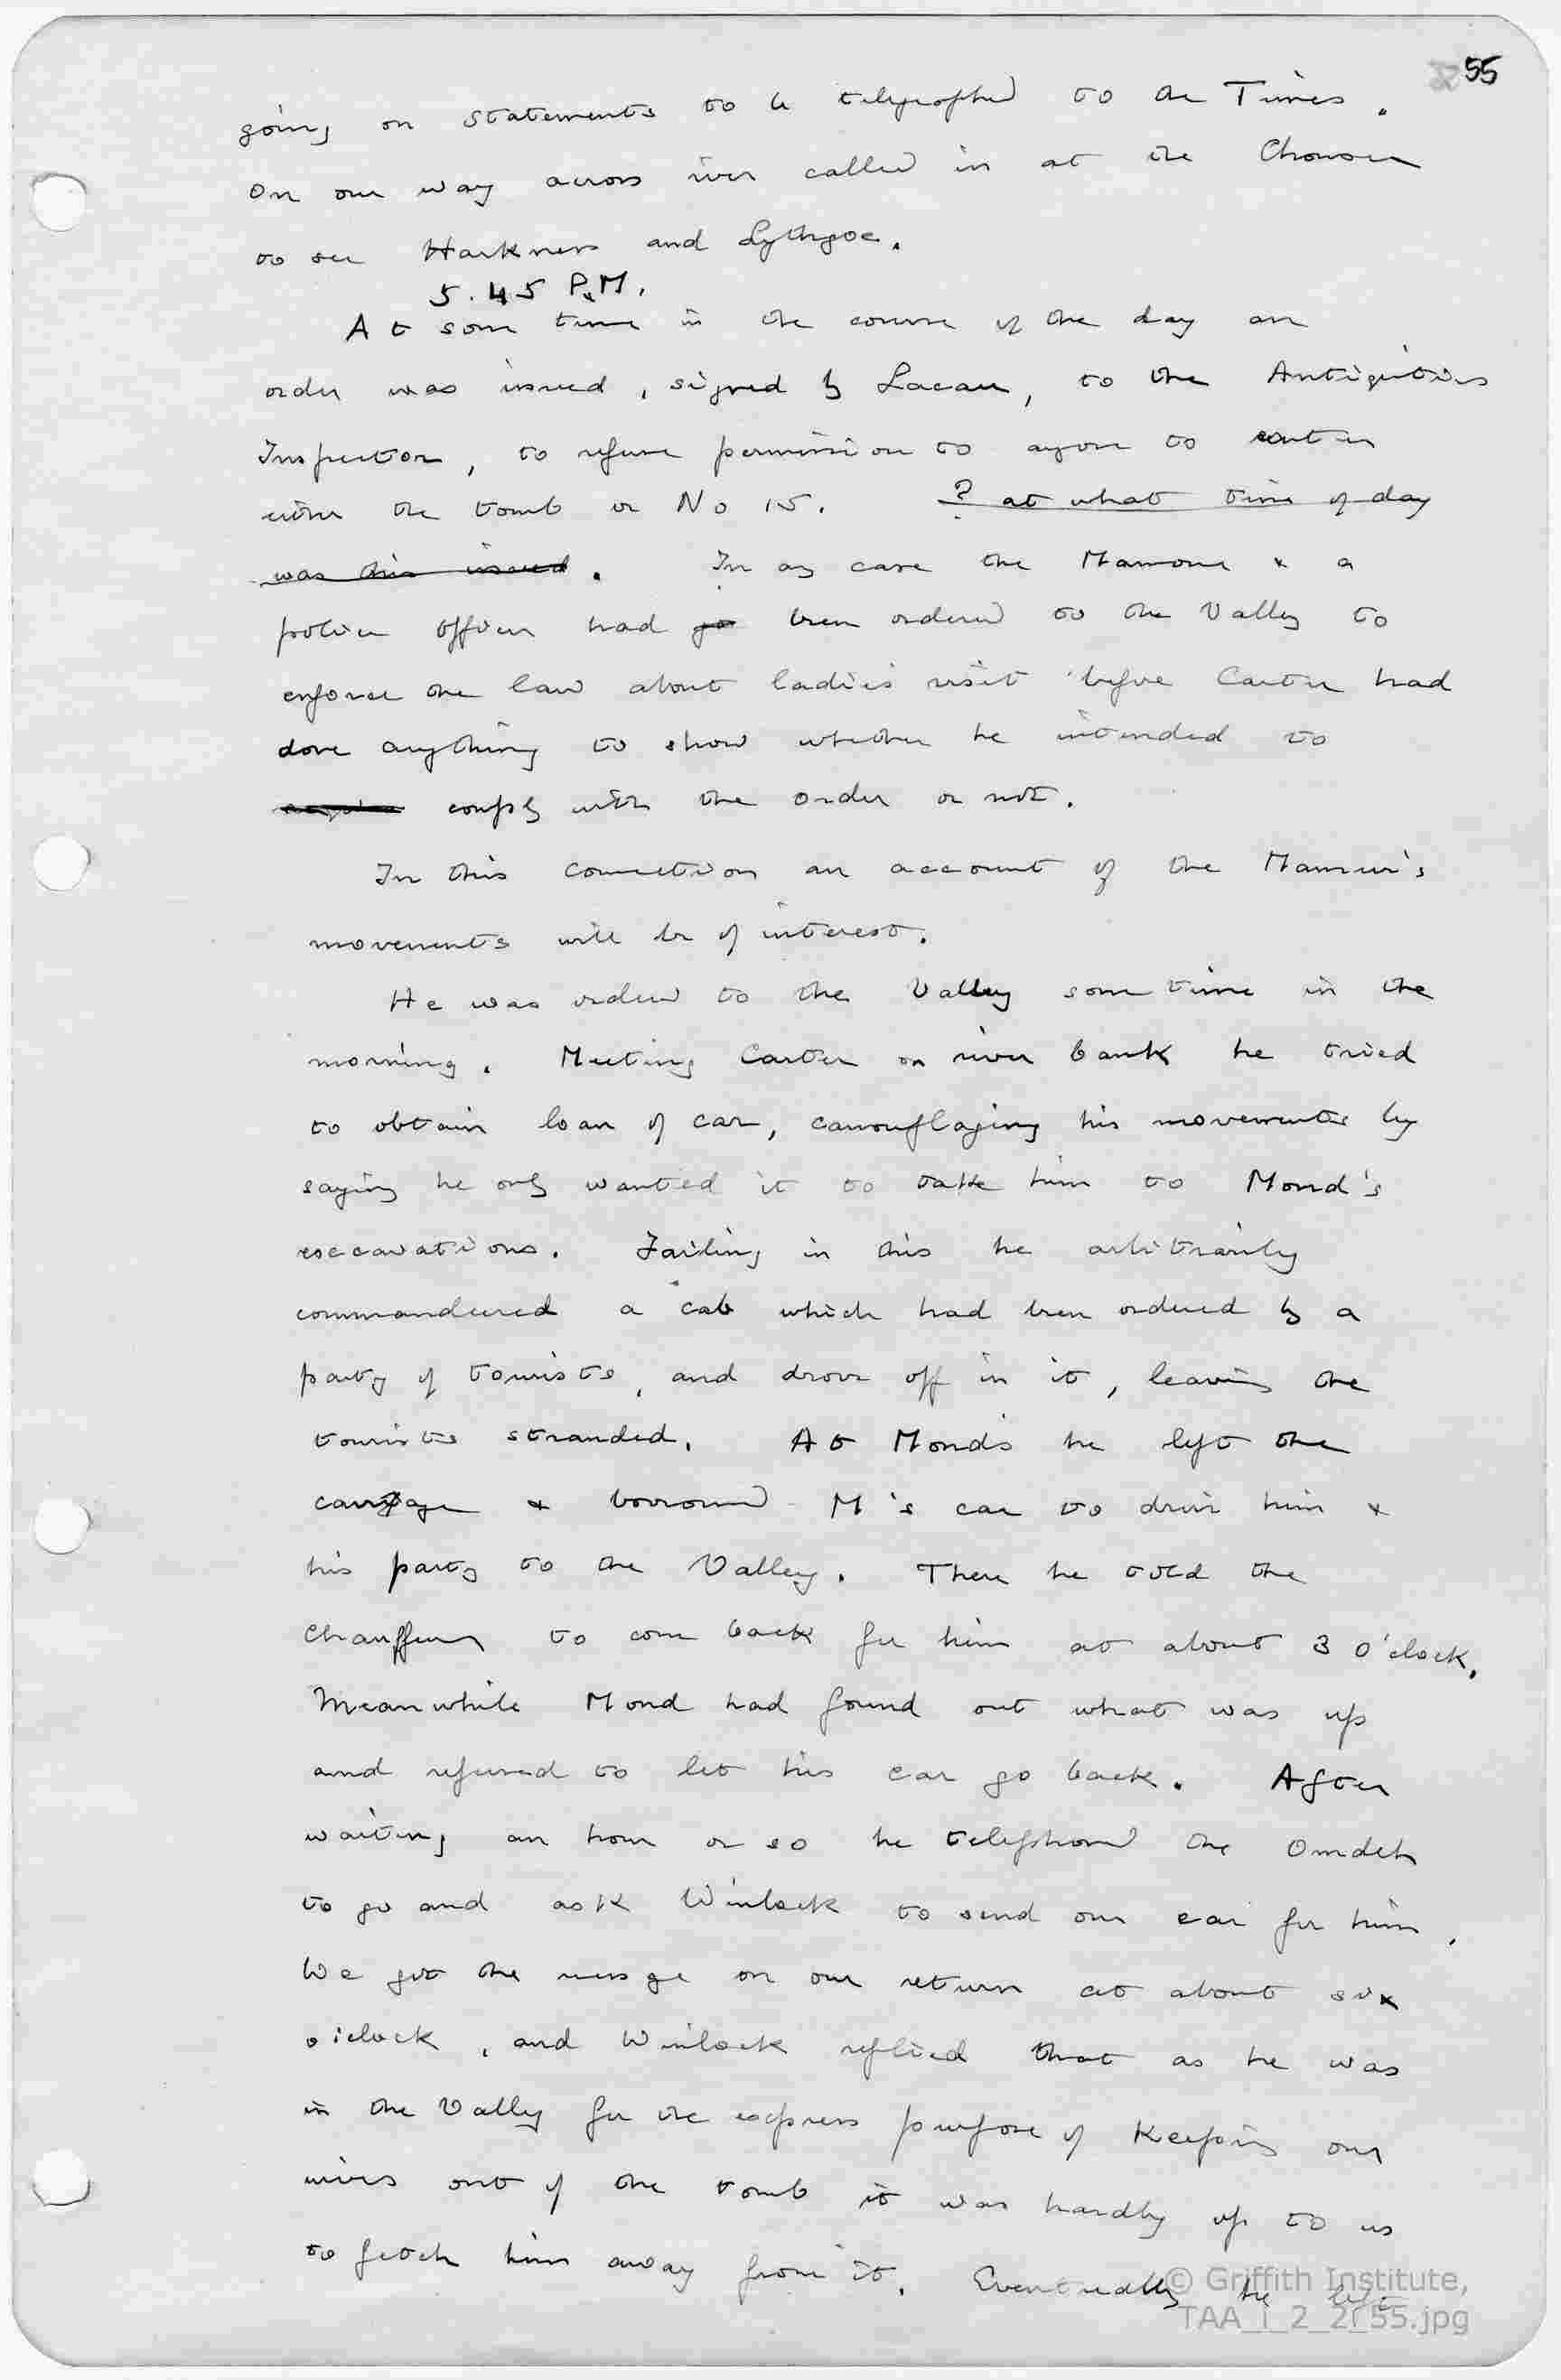 55
going on statements to be telegraphed to the Times.
On our way across river called in at the Chonsu
to see Harkness and Lythgoe.
5.45 P.M.
At some time in the course of the day an
order was issued, signed by Lacau, to the Antiquities
Inspector, to refuse permission to anyone to enter
either the tomb or No 15. ? at what time of day
was this issued. In any case the Mamour & a
police officer had go been ordered to the Valley to
enforce the law about ladies visit before Carter had
done anything to show whether he intended to
comply with the order or not.
In this connection an account of the Mamur's
movements will be of interest.
He was ordered to the Valley some time in the
morning. Meeting Carter on river bank he tried
to obtain loan of car, camouflaging his movements by
saying he only wanted it to take him to Mond's
excavations. Failing in this he arbitrarily
commandeered a cab which had been ordered by a
party of tourists, and drove off in it, leaving the
tourists stranded. At Mond's he left the
carriage & borrowed M's car to drive him &
his party to the Valley. There he told the
chauffeur to come back for him at about 3 o'clock.
Meanwhile Mond had found out what was up
and refused to let his car go back. After
waiting an hour or so he telephoned the Omdeh
to go and ask Winlock to send our car for him.
We got the message on our return at about six
o'clock, and Winlock replied that as he was
in the Valley for the express purpose of keeping our
wives out of the tomb it was hardly up to us
to fetch him away from it. Eventually he left
© Griffith Institute,
TAA_i_2_2r_55.jpg